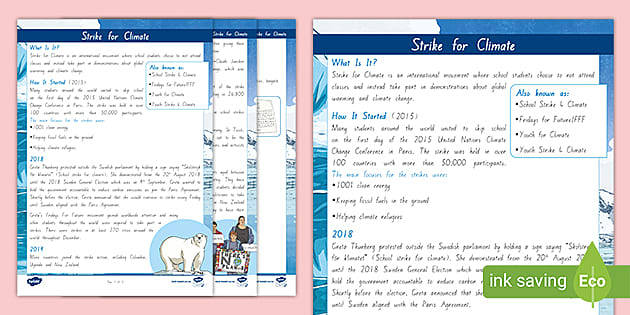 Strike for Climate
What Is It?
Strike for Climate is an international movement where school students choose to not attend
classes and instead take part in demonstrations about global
warming and climate change.
Also known as:
•School Strike 4 Climate
•Fridays for Future/FFF
•Youth for Climate
•Youth Strike 4 Climate
How It Started (2015)
Many students around the world united to skip school
on the first day of the 2015 United Nations Climate
Change Conference in Paris. The strike was held in over
100 countries with more than 50,000 participants.
The main focuses for the strike were:
•100% clean energy
•Keeping fossil fuels in the ground
•Helping climate refugees
2018
Greta Thunberg protested outside the Swedish parliament by holding a sign saying "Skolstrejk
för klimatet" (School strike for climate). She demonstrated from the 20th August 2018
until the 2018 Swedish General Election which was on 9th September. Greta wanted to
hold the government accountable to reduce carbon emissions as per the Paris Agreement.
Shortly before the election, Greta announced that she would continue to strike every Friday
until Sweden aligned with the Paris Agreement.
Greta's Fridays For Future movement gained worldwide attention and many
other students throughout the world were inspired to take part in
strikes. There were strikes in at least 270 cities around the
world throughout December.
2019
More countries joined the strike action, including Colombia,
Uganda and New Zealand.
twinkl
Strike for Climate
Strike for Climate
What Is It?
Strike for Climate is an international movement where school students choose to not attend
classes and instead take part in demonstrations about global
warming and climate change.
Also known as:
•School Strike 4 Climate
•Fridays for Future/FFF
•Youth for Climate
•Youth Strike 4 Climate
How It Started (2015)
Many students around the world united to skip school
on the first day of the 2015 United Nations Climate
Change Conference in Paris. The strike was held in over
100 countries with more than 50,000 participants.
The main focuses for the strikes were:
•100% clean energy
•Keeping fossil fuels in the ground
•Helping climate refugees
2018
Greta Thunberg protested outside the Swedish parliament by holding a sign saying "Skolstrejk
för klimatet" (School strike for climate). She demonstrated from the 20th August
until the 2018 Swedish General Election which
hold the government accountable to reduce carbon
Shortly before the election, Greta announced that she
until Sweden aligned with the Paris Agreement.
ink saving
Eco